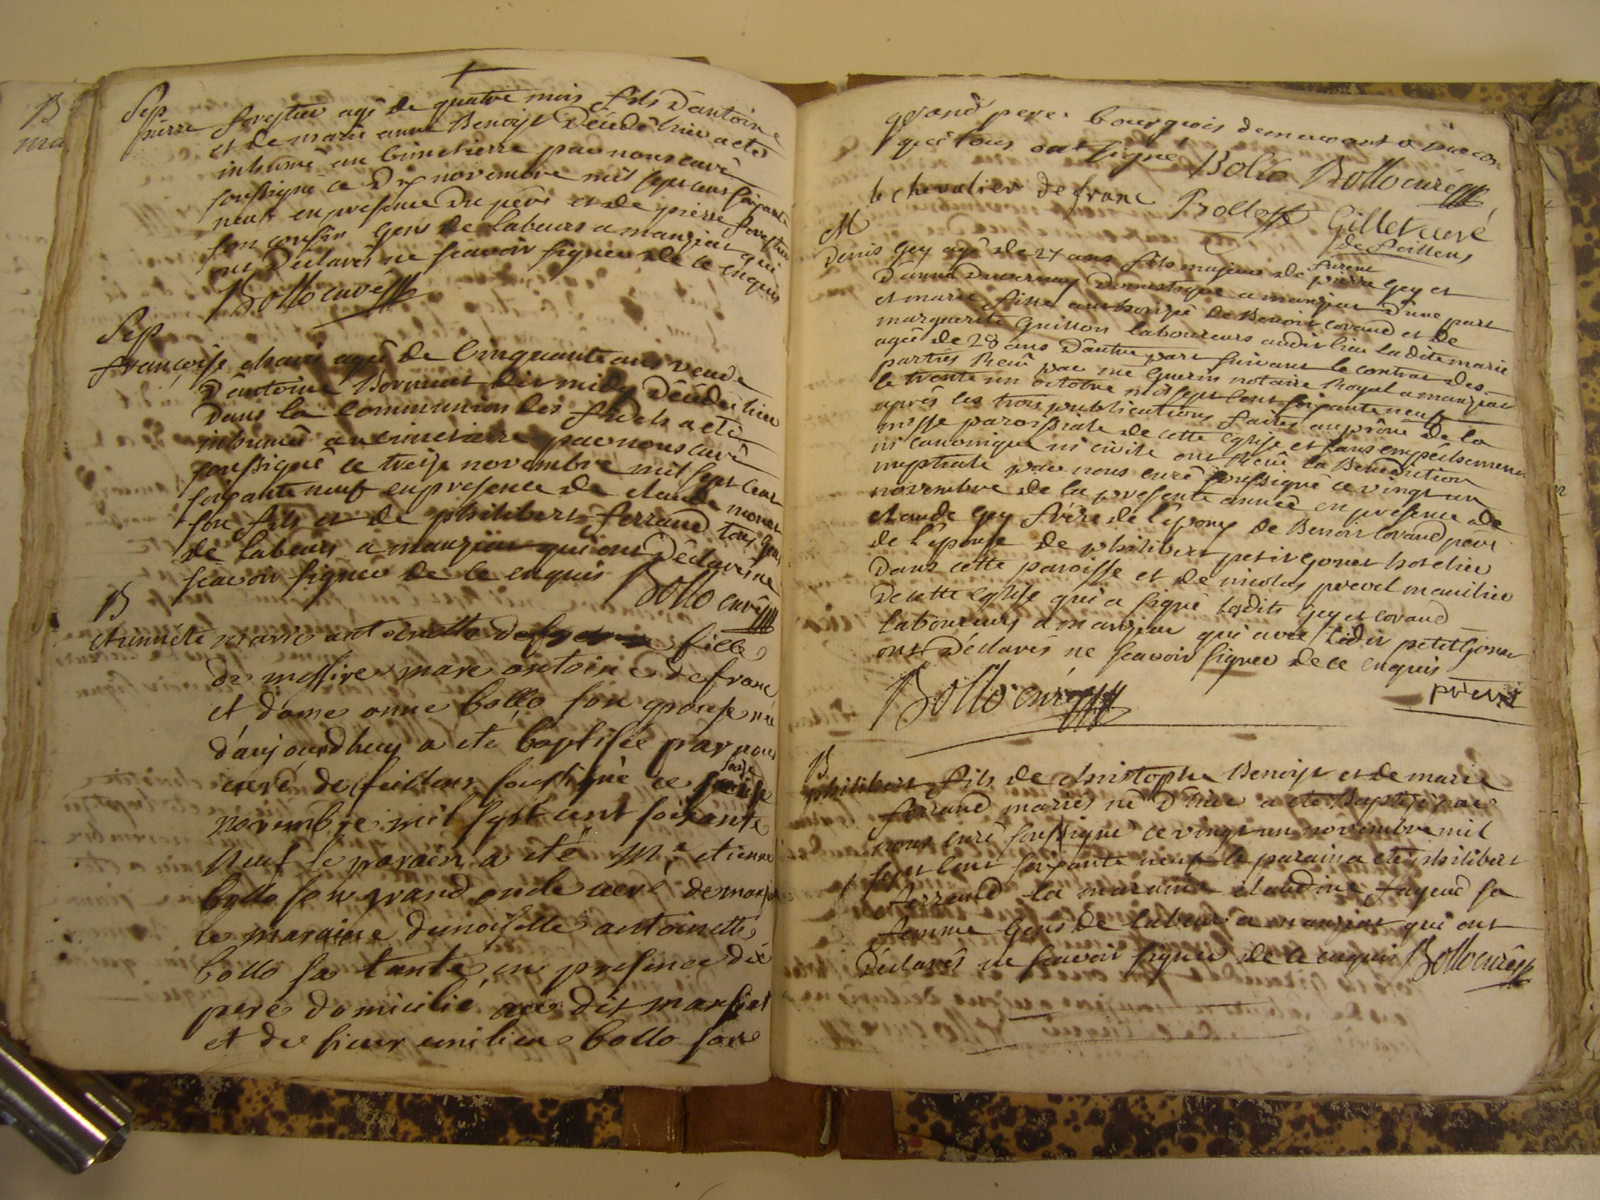 B
ma
Sep
pierre forestier agé de quatre mois fils d'antoine
et de marie anne Benoist décédé hier a eté
inhumé au cimetierre par nous curé
soussigné ce novembre mil sept cens soixante
neuf en presence du pere et de pierre forestier
son cousin gens de labeurs a manziat qui
ont déclarés ne scavoir signer de ce enquis
Bollo curé
Sep
françoise agée de cinquante ans veuve
d'antoine Morunat dit midy décédée hier
dans la communion des fidels a eté
inhumée au cimetierre par nous curé
soussigné ce treize novembre mil sept cent
soixante neuf en presence de claude
son fils et de philibert ferrand tous gens
de labeurs a manziat qui ont déclarés ne
scavoir signer de ce enquis Bollo curé
B
marie antoinette fille
de messire marc antoine defranc
et dame anne bollo son epouse née
d'aujourdhuy a eté baptisée par nous
curé de feillens soussigné ce seize
novembre mil sept cent soixante
neuf le parain a eté Mre etienne
bollo son grand oncle curé de manziat
la maraine demoiselle antoinette
bollo sa tante en presence du
pere domicilié au dit manziat
et de sieur emilien bollo son
grand pere bourgeois demeurant a macon
qui tous ont signé Bollo Bollo curé
le chevalier de franc Bollo Gillet curé
de feillens
M
Denis Gey agé de 27 ans fils majeur de pierre Gey et
d'anne domestique a manziat d'une part
et marie fille authorisée de Benoit Lovand et de
marguerite Guillon laboureurs audit lieu ladite marie
agée de 28 ans d'autre part suivant le contrat des
parties Receu par me Guerin notaire Royal a manziat
le trente un octobre mil sept cent soixante neuf
apres les trois publications faites au prône de la
messe paroissiale de cette eglise et sans empechement
ni canonique ni civile ont Receu la Benediction
nuptiale par nous curé soussigné ce vingt un
novembre de la presente année en presence de
claude Gey frere de l'epoux de Benoit Lovand pere
de l'epouse de philibert petitjonet hotelier
dans cette paroisse et de nicolas prevel marillier
de cette eglise qui a signé lesdits Gey et Lovand
laboureurs a manziat qui avec ledit petitjonet
ont déclarés ne scavoir signer de ce enquis
Bollo curé
B
philibert fils de christophe Benoist et de marie
ferrand mariés né d'hier a eté Baptisé par
nous curé soussigné ce vingt un novembre mil
sept cent soixante neuf le parain a eté philibert
ferrand la maraine claudine fayend sa
femme gens de labeur a manziat qui ont
déclarés ne scavoir signer de ce enquis Bollo curé